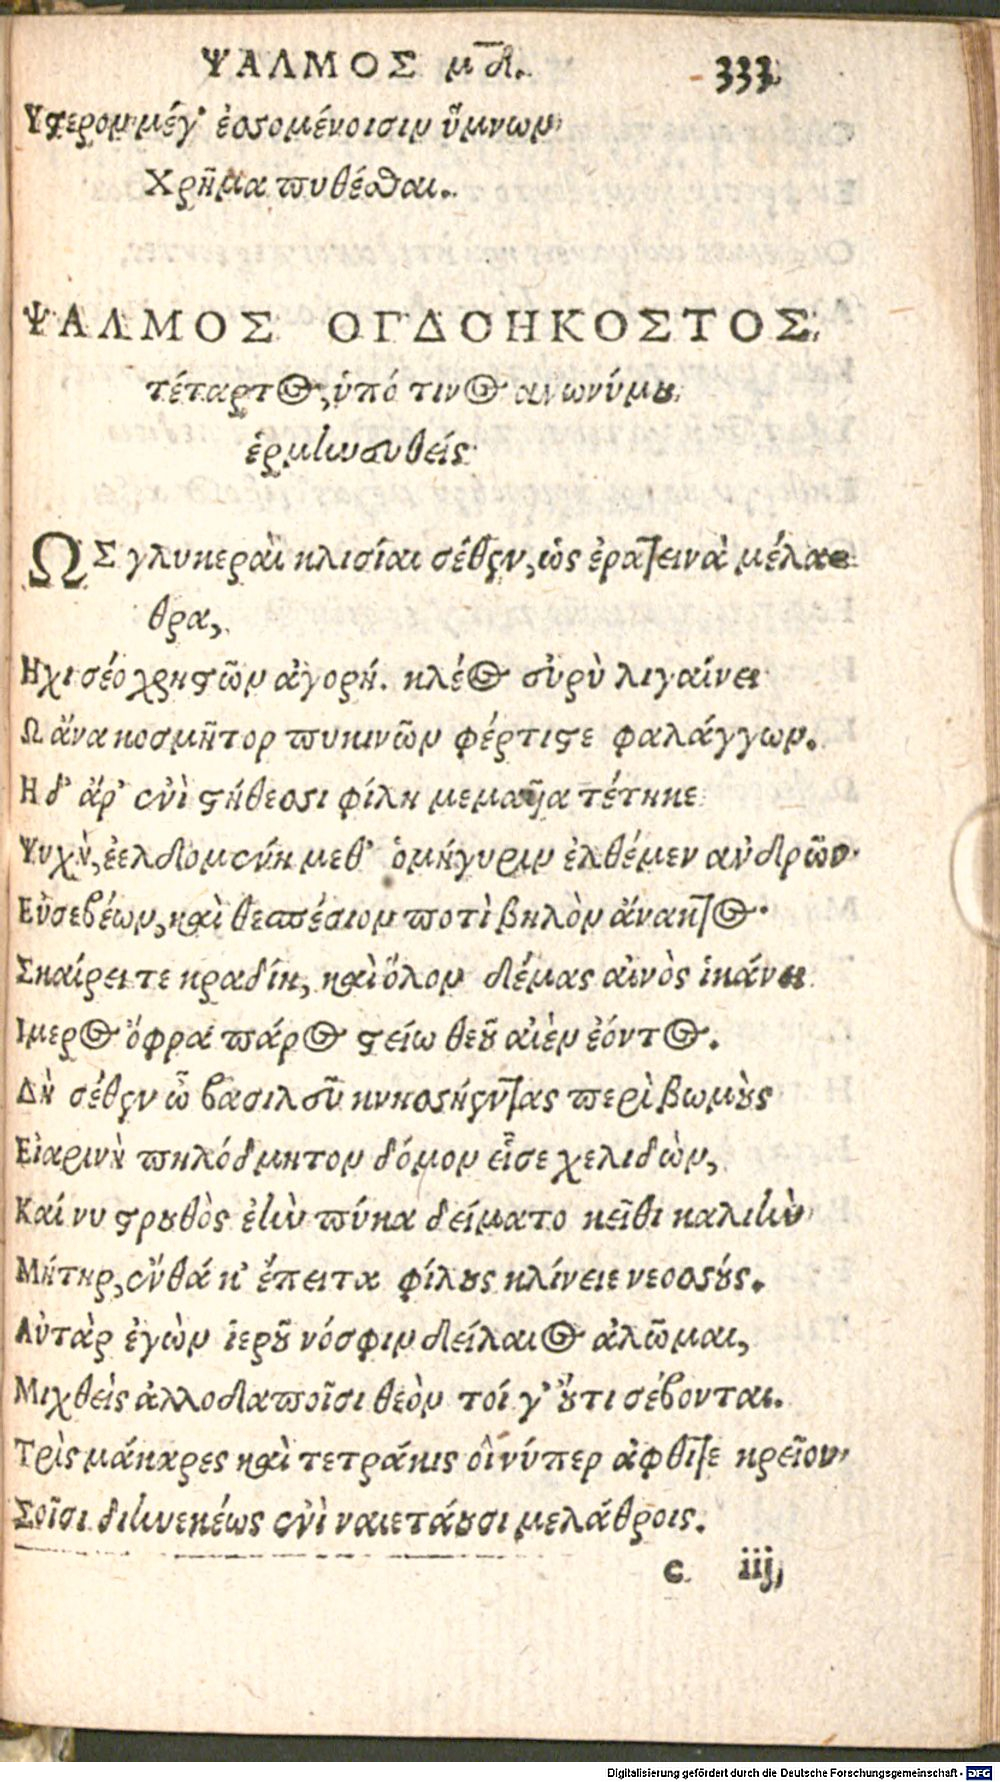 ΨΑΛΜΟΣ μδ. 333
Υστερομ μέγ' ἐσσομένοισιμ ὕμνωμ
Χρῆμα πυθέσθαι.
ΨΑΛΜΟΣ ΟΓΔΟΗΚΟΣΤΟΣ
τέταρτος, ὑπό τινος ανωνύμου
ἑρμηνευθείς
ΩΣ γλυκεραὶ κλισίαι σέθεν, ὡς ἐρατεινὰ μέλα-
θρα,
Ηχι σέο χρηστῶμ ἀγορή. κλέος εὐρὺ λιγαίνει
Ω ἄνα κοσμῆτορ πυκινῶμ φέρτιστε φαλάγγωμ.
Η δ' ἄρ' ἐνὶ στήθεσσι φίλη μεμαῦῖα τέτηκε
Ψυχὴ, ἐελδομένη μεθ' ὁμήγυριμ ἐλθέμεν ανδρῶν
Εὐσεβέωμ, καὶ θεσπέσιομ ποτὶ βηλὸμ ἄνακτος·
Σκαίρει τε κραδίη, καὶ ὅλομ δέμας αἰνὸς ἱκάνει
Ιμερος ὄφρα πάρος στείω θεοῦ αἰὲμ ἐόντος.
Δὴ σέθεν ὦ βασιλεῦ κυκοσήεντας περὶ βωμοὺς
Εἰαρινὴ πηλόδμητομ δόμομ εἷσε χελιδὼμ,
Καί νυ στρουθὸς ἐῒυ πύκα δείματο κεῖθι καλιὴν
Μήτηρ, ἔνθά κ' ἔπειτα φίλους κλίνειε νεοσσούς.
Αὐτὰρ ἐγὼμ ἱεροῦ νόσφιμ δείλαιος αλῶμαι,
Μιχθεὶς ἀλλοδαποῖσι θεὸμ τοί γ' οὔτι σέβονται.
Τρὶς μάκαρες καὶ τετράκις οἳ νύπερ ἀφθιτε κρεῖον
Σοῖσι διηνεκέως ἐνὶ ναιετάουσι μελάθροις.
c iij
Digitalisierung gefördert durch die Deutsche Forschungsgemeinschaft - DFG